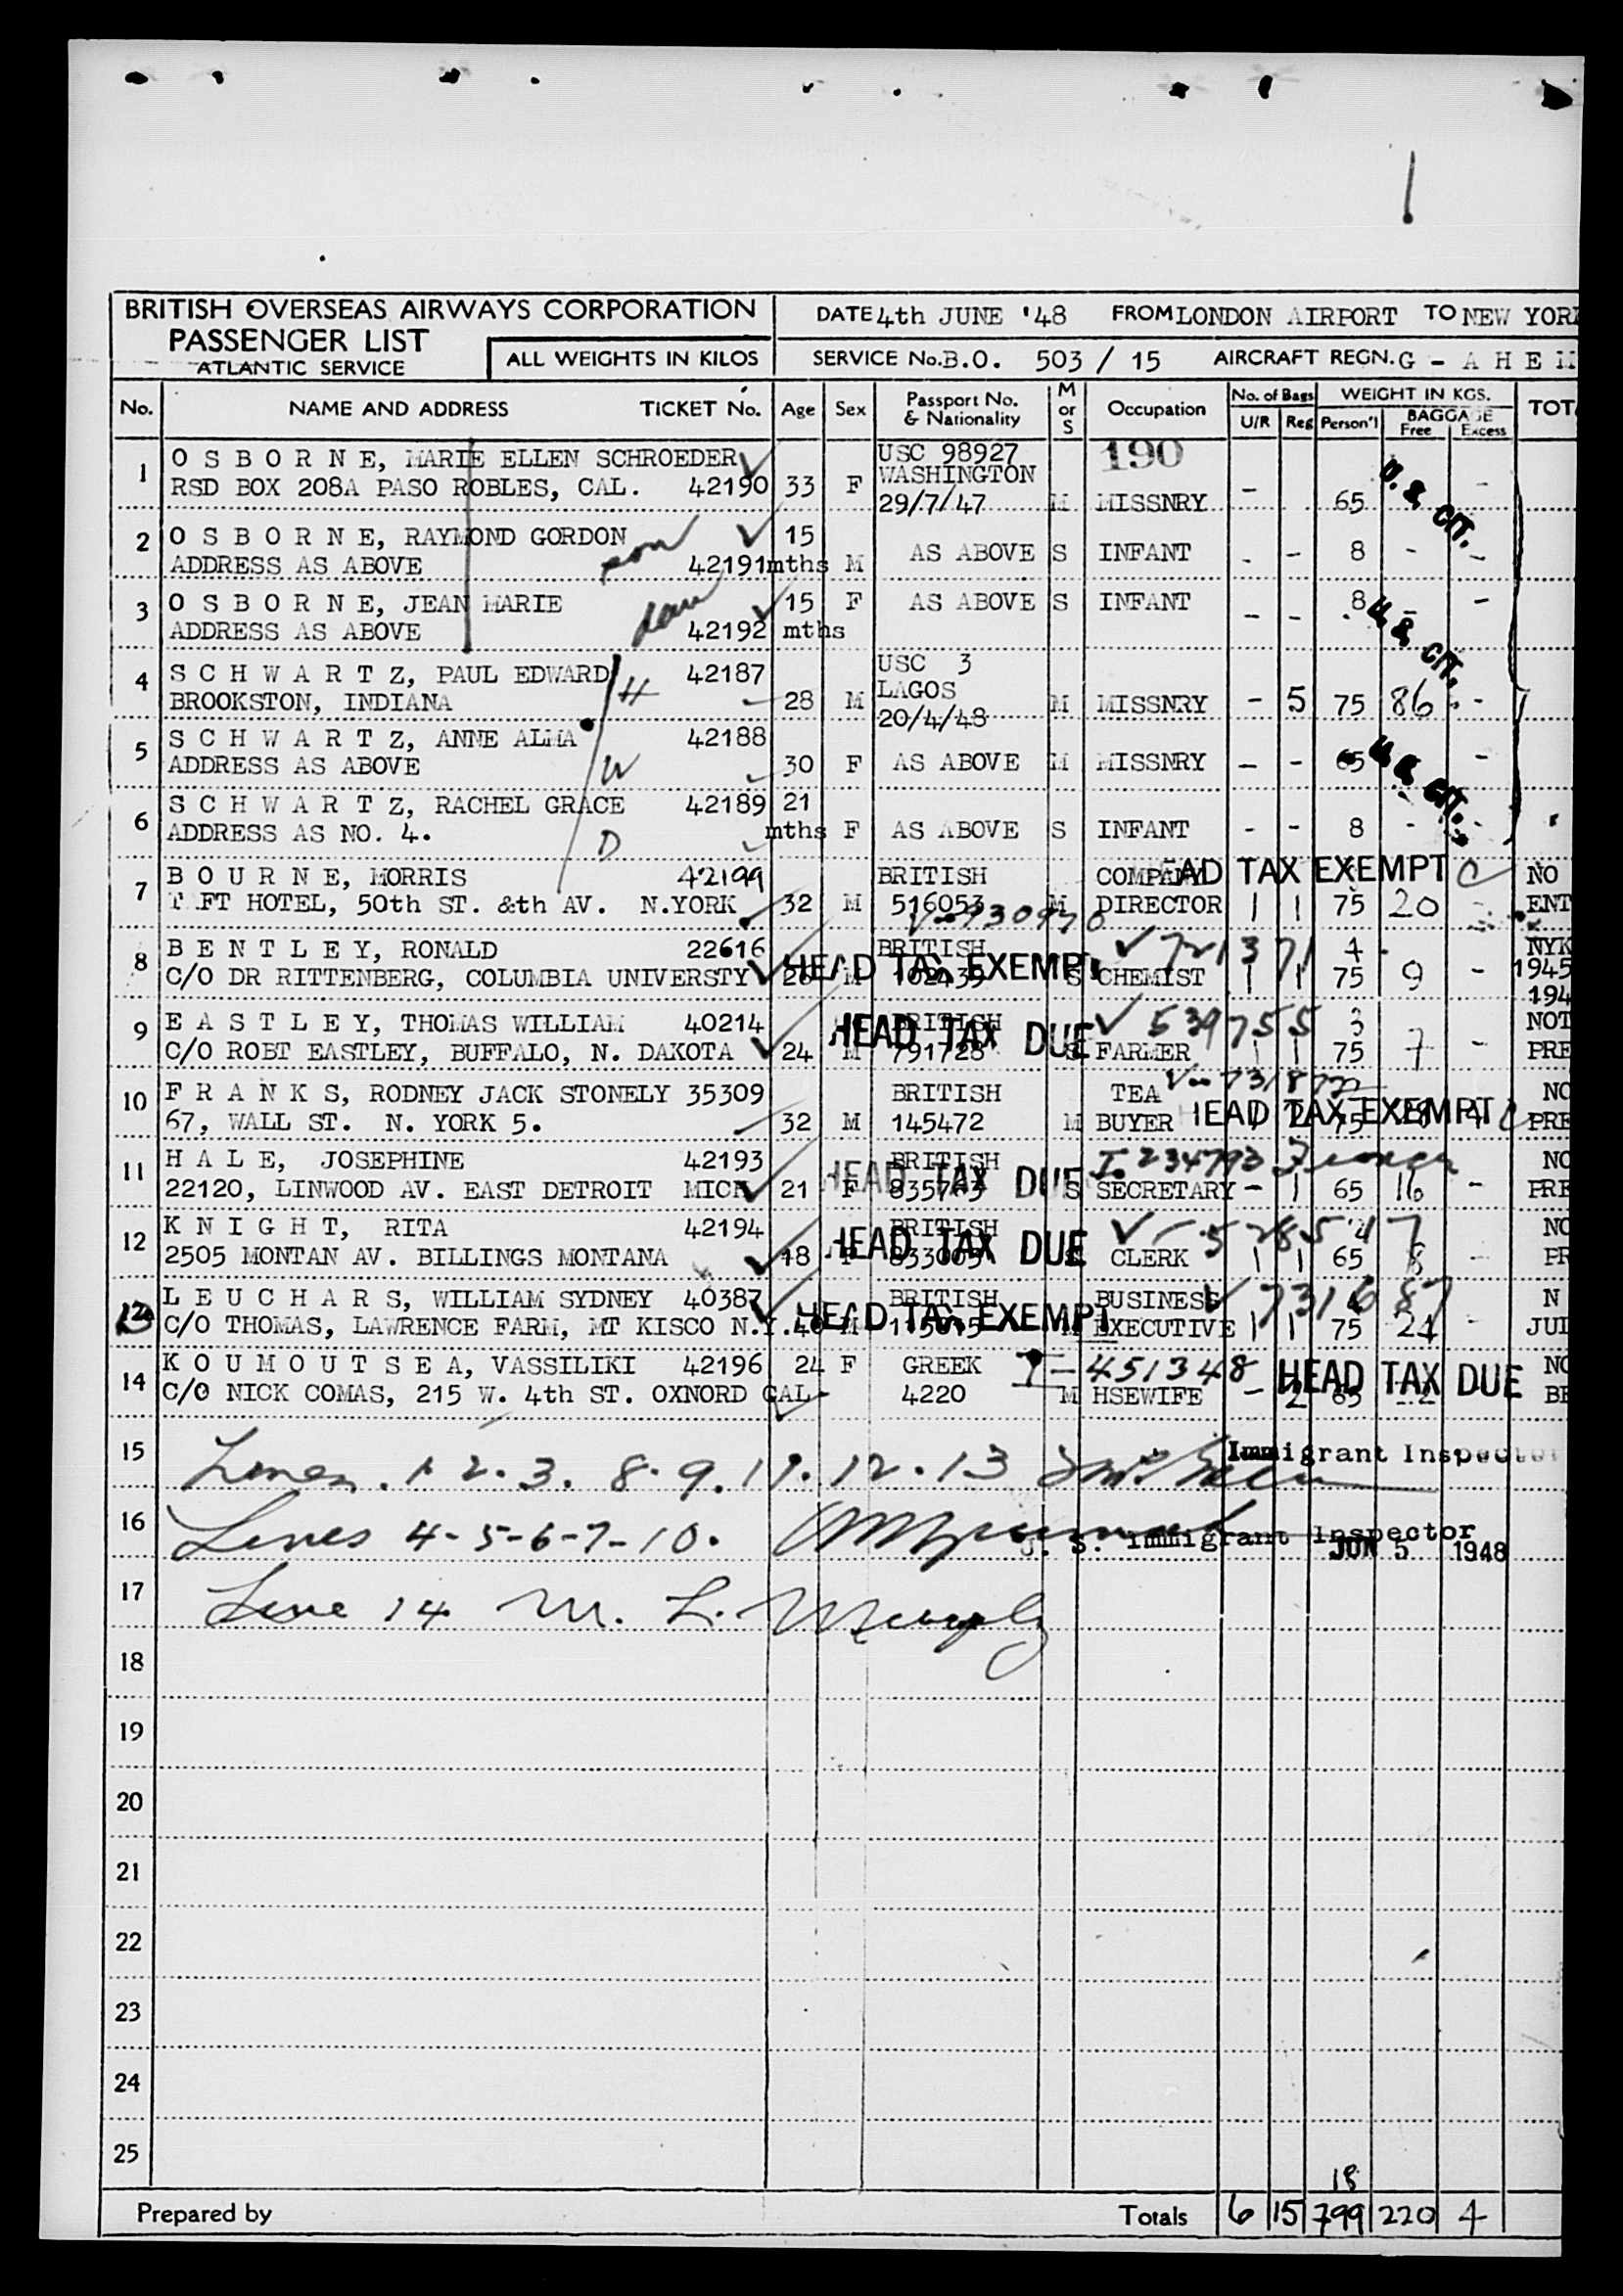 BRITISH OVERSEAS AIRWAYS CORPORATION
PASSENGER LIST
ATLANTIC SERVICE
ALL WEIGHTS IN KILOS
DATE 4th JUNE '48 FROM LONDON AIRPORT TO NEW YORK
SERVICE No. B.O. 503 / 15 AIRCRAFT REGN. G - A H E
No. NAME AND ADDRESS TICKET No. Age Sex Passport No. & Nationality M or S Occupation No. of Bags U/R Reg WEIGHT IN KGS. Person'l BAGGAGE Free Excess TOT
190
1 O S B O R N E, MARIE ELLEN SCHROEDER USC 98927
WASHINGTON
RSD BOX 208A PASO ROBLES, CAL. 42190 33 F 29/7/47 M MISSNRY - 65 -
U.S. CIT.
2 O S B O R N E, RAYMOND GORDON son 15
ADDRESS AS ABOVE 42191 mths M AS ABOVE S INFANT - - 8 - -
3 O S B O R N E, JEAN MARIE dau 15 F AS ABOVE S INFANT - - 8 - -
ADDRESS AS ABOVE 42192 mths
U.S. CIT.
4 S C H W A R T Z, PAUL EDWARD H 42187 USC 3
LAGOS
BROOKSTON, INDIANA 28 M 20/4/48 M MISSNRY - 5 75 86 -
5 S C H W A R T Z, ANNE ALMA 42188
ADDRESS AS ABOVE W 30 F AS ABOVE M MISSNRY - - 65 -
U.S. CIT.
6 S C H W A R T Z, RACHEL GRACE 42189 21
ADDRESS AS NO. 4. D mths F AS ABOVE S INFANT - - 8 -
7 B O U R N E, MORRIS 42199 BRITISH COMPANY HEAD TAX EXEMPT C NO
T FT HOTEL, 50th ST. &th AV. N.YORK 32 M 516053 M DIRECTOR 1 1 75 20 - ENT
V-930970
8 B E N T L E Y, RONALD 22616 BRITISH 721371 4 NYK
C/O DR RITTENBERG, COLUMBIA UNIVERSTY HEAD TAX EXEMPT M S CHEMIST 1 1 75 9 - 1945
194
9 E A S T L E Y, THOMAS WILLIAM 40214 BRITISH 539755 3 NOT
C/O ROBT EASTLEY, BUFFALO, N. DAKOTA 24 M HEAD TAX DUE 791728 S FARMER 1 1 75 7 - PRE
10 F R A N K S, RODNEY JACK STONELY 35309 BRITISH TEA NO
67, WALL ST. N. YORK 5. 32 M 145472 M BUYER HEAD TAX EXEMPT 1 2 75 4 PRE
11 H A L E, JOSEPHINE 42193 BRITISH I. 234793 NO
22120, LINWOOD AV. EAST DETROIT MICH 21 F HEAD TAX DUE S SECRETARY - 1 65 16 - PRE
12 K N I G H T, RITA 42194 BRITISH 528517 NO
2505 MONTAN AV. BILLINGS MONTANA 18 F HEAD TAX DUE CLERK 1 1 65 8 - PR
L E U C H A R S, WILLIAM SYDNEY 40387 BRITISH BUSINESS N
C/O THOMAS, LAWRENCE FARM, MT KISCO N.Y. HEAD TAX EXEMPT M EXECUTIVE 1 1 75 21 - JUL
14 K O U M O U T S E A, VASSILIKI 42196 24 F GREEK I-451348 HEAD TAX DUE NO
C/O NICK COMAS, 215 W. 4th ST. OXNORD CAL 4220 M HSEWIFE - 2 65 BE
15 Lines. 1. 2. 3. 8. 9. 11. 12. 13 Immigrant Inspector
16 Lines 4-5-6-7-10. U. S. Immigrant Inspector
JUN 5 1948
17 Line 14 M. L. Murphy
18
19
20
21
22
23
24
25
18
Prepared by Totals 6 15 799 220 4